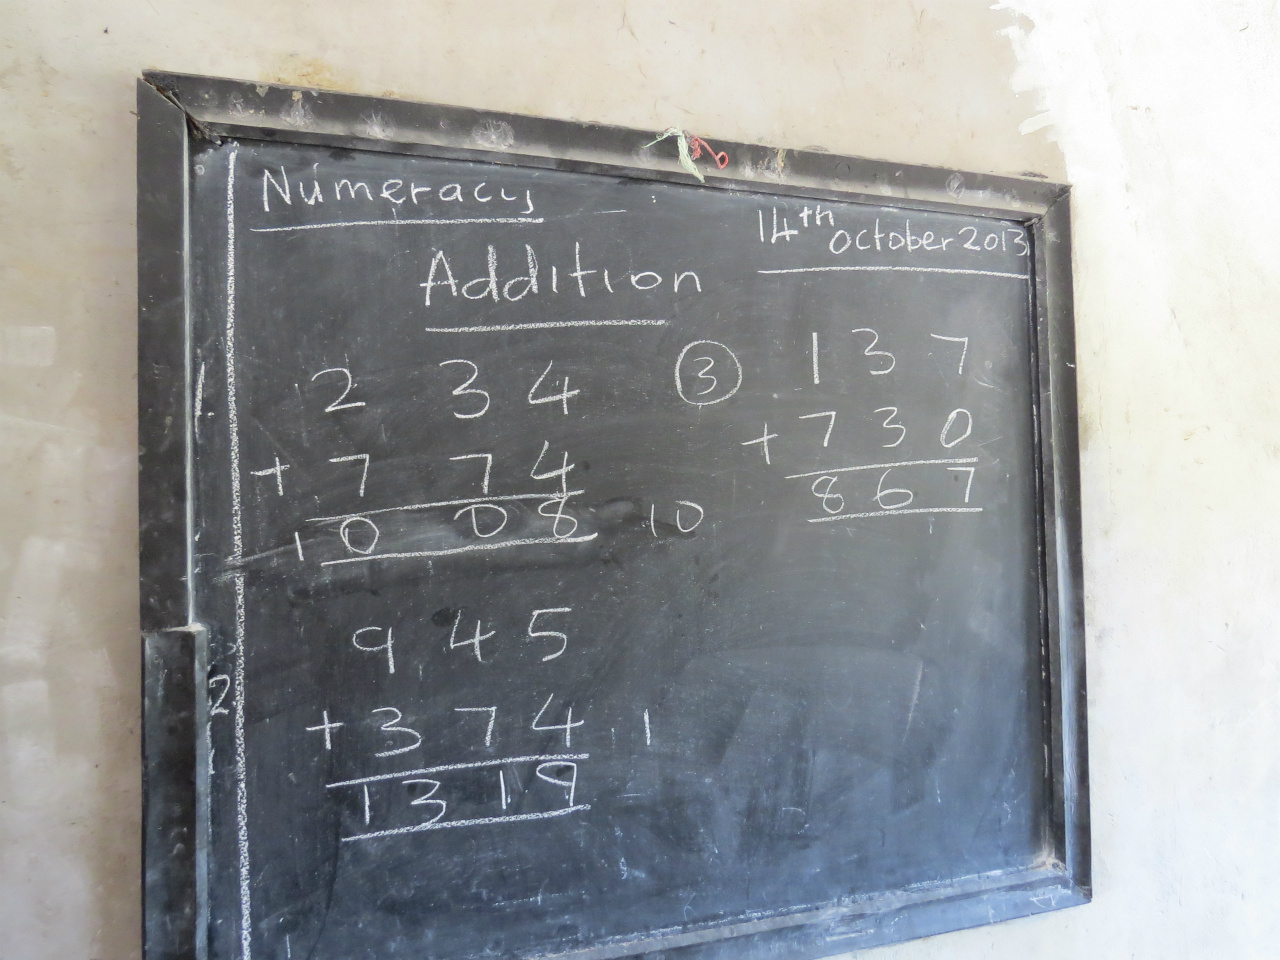 Numeracy
14th October 2013
Addition
1
2 3 4
+ 7 7 4
1 0 0 8 10
2
9 4 5
+ 3 7 4 1
1 3 1 9
3
1 3 7
+ 7 3 0
8 6 7